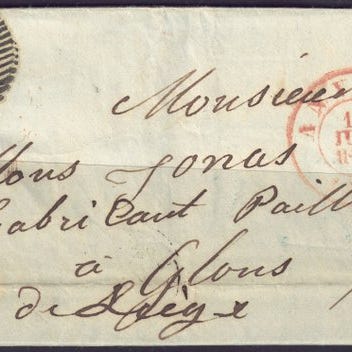 Monsieur
Jonas
Fabricant Paill
à Glons
de Liége